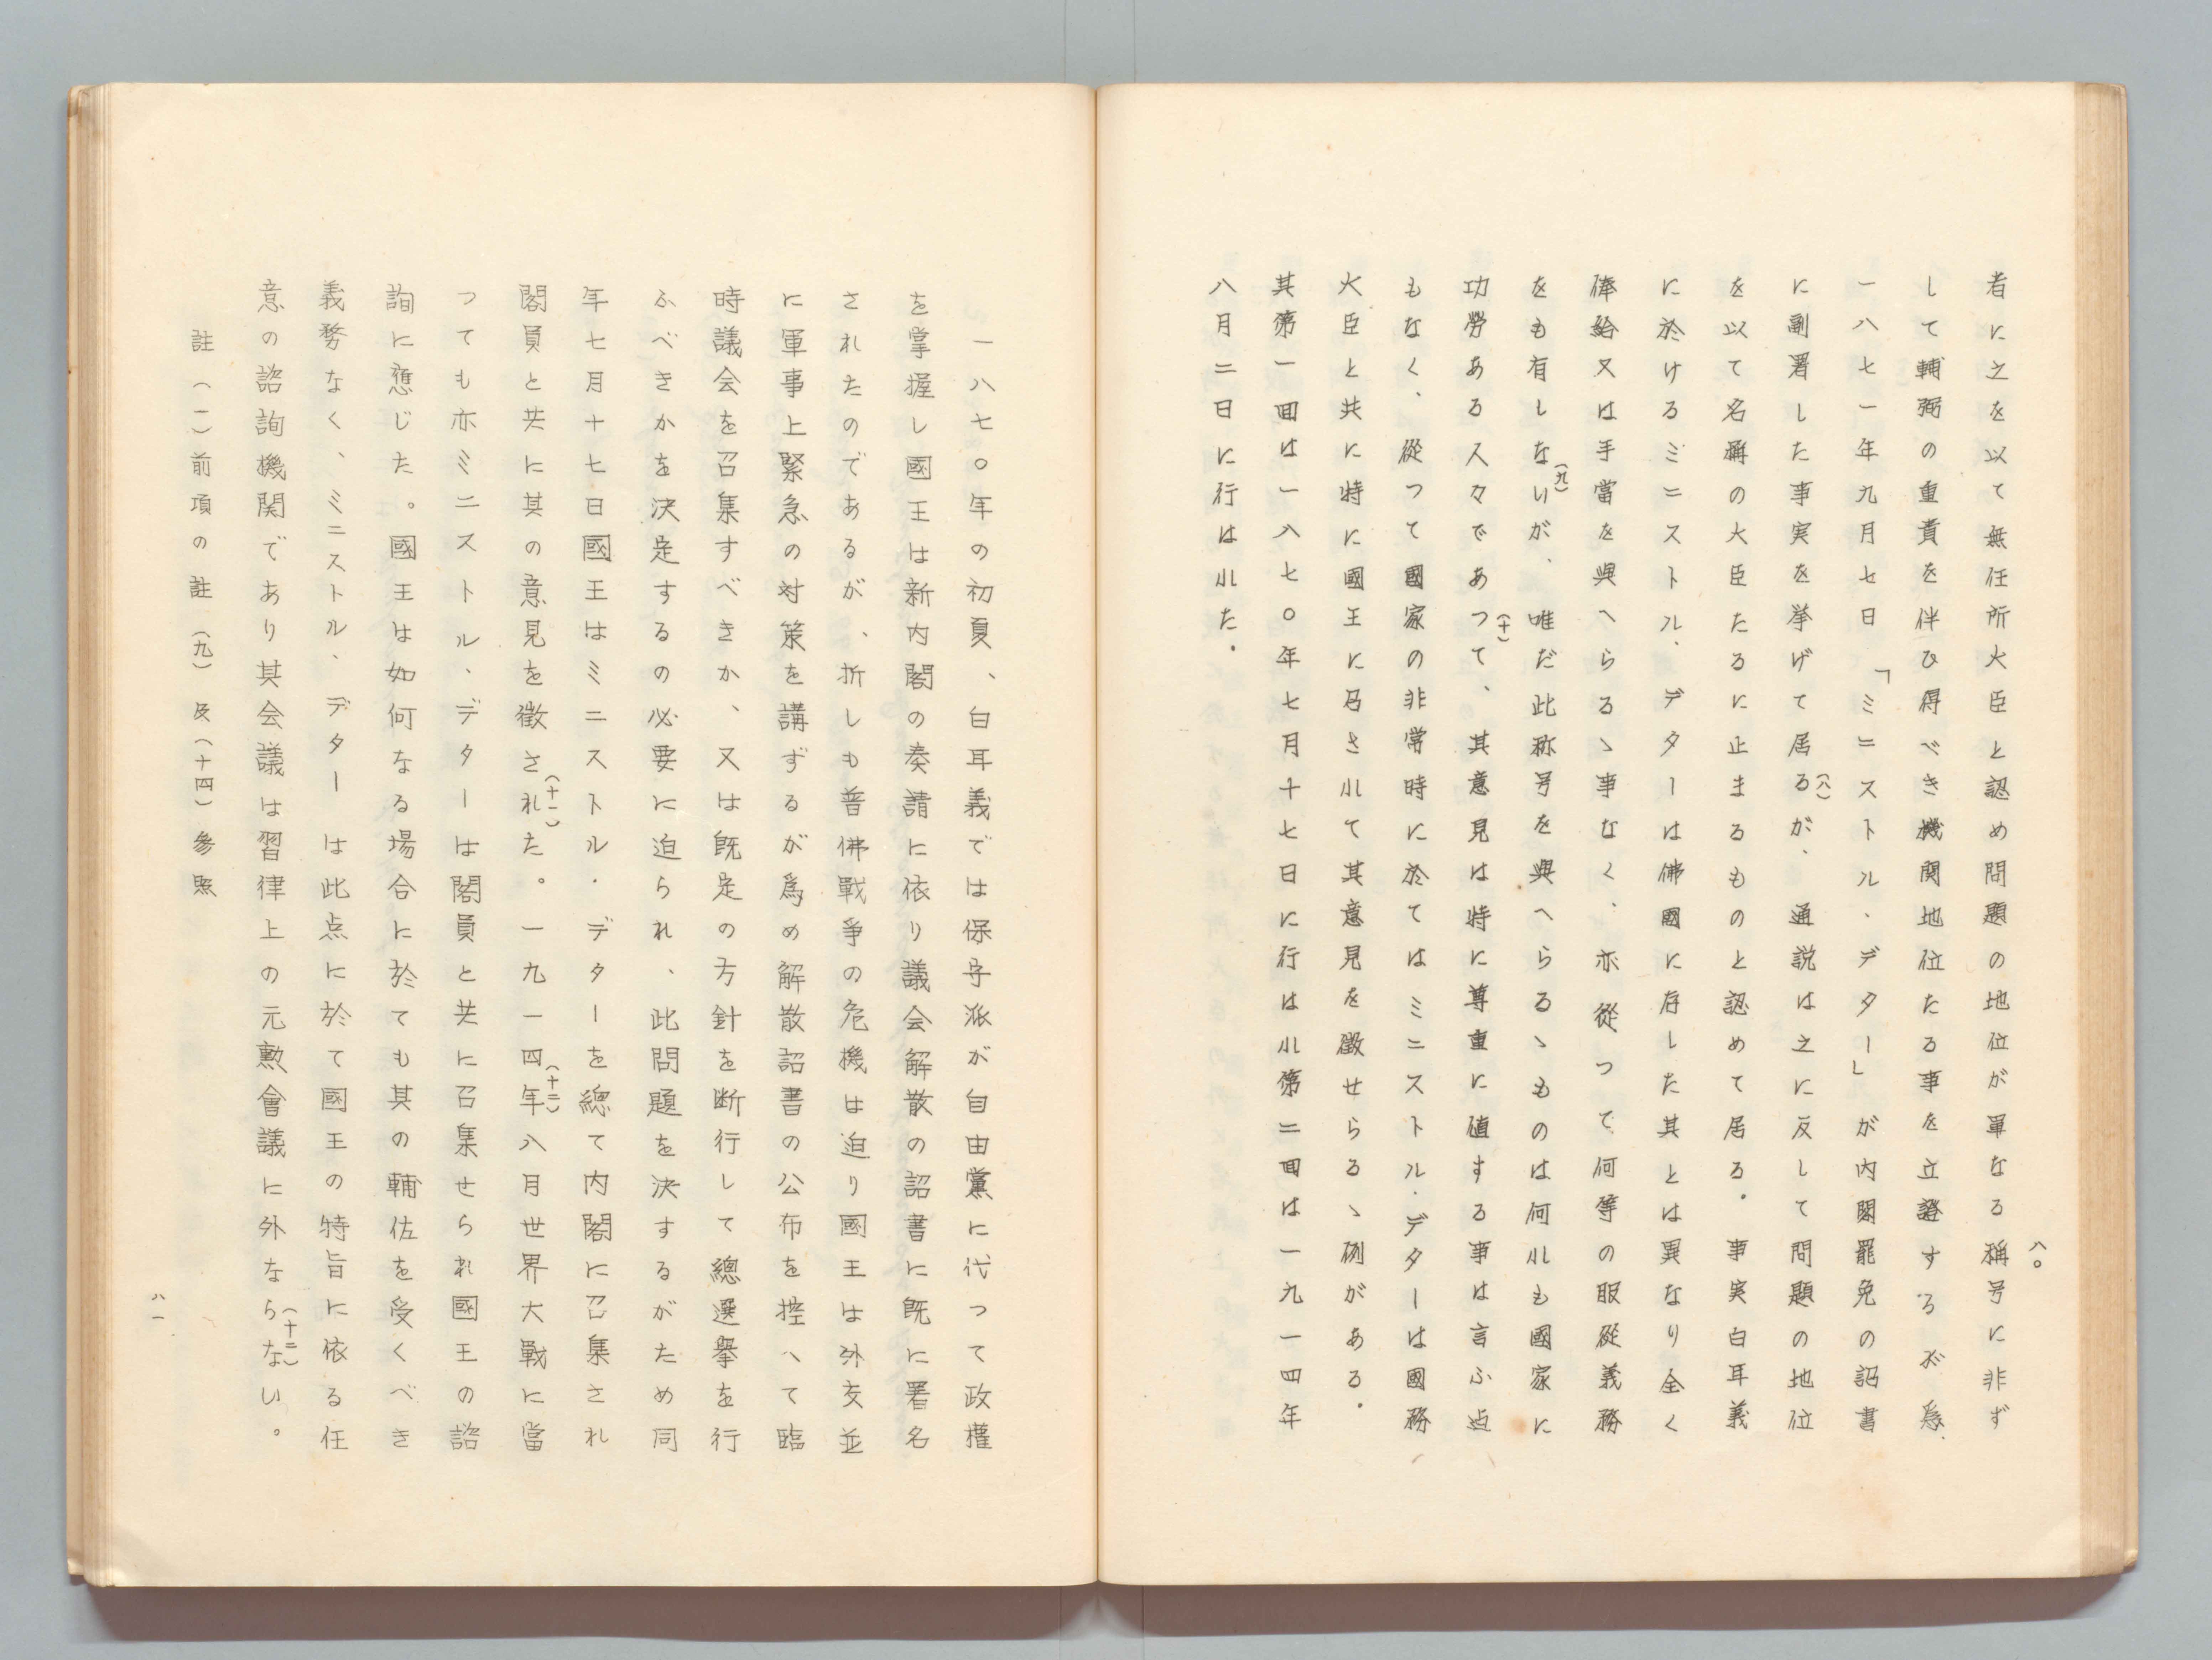 八〇
者に之を以て無任所大臣と認め問題の地位が單なる稱号に非ず
して輔弼の重責を伴ひ得べき機関地位たる事を立證するが爲、
一八七一年九月七日「ミニストル・デター」が内閣罷免の詔書
に副署した事実を挙げて居る(八)が、通説は之に反して問題の地位
を以て名稱の大臣たるに止まるものと認めて居る。事実白耳義
に於けるミニストル・デターは佛國に存した其とは異なり全く
俸給又は手當を與へらるゝ事なく、亦從つて何等の服從義務
をも有しない(九)が、唯だ此称号を與へらるゝものは何れも國家に
功勞ある人々であつ(十)て、其意見は特に尊重に値する事は言ふ迠
もなく、從つて國家の非常時に於てはミニストル・デターは國務
大臣と共に特に國王に召されて其意見を徴せらるゝ例がある。
其第一回は一八七〇年七月十七日に行はれ第二回は一九一四年
八月二日に行はれた。
一八七〇年の初夏、白耳義では保守派が自由黨に代つて政權
を掌握し國王は新内閣の奏請に依り議会解散の詔書に既に署名
されたのであるが、折しも普佛戰爭の危機は迫り國王は外交並
に軍事上緊急の対策を講ずるが爲め解散詔書の公布を控へて臨
時議会を召集すべきか、又は既定の方針を断行して總選擧を行
ふべきかを決定するの必要に迫られ、此問題を決するがため同
年七月十七日國王はミニストル・デターを總て内閣に召集され
閣員と共に其の意見を徴され(十一)た。一九一四年(十二)八月世界大戰に當
つても亦ミニストル・デターは閣員と共に召集せられ國王の諮
詢に應じた。國王は如何なる場合に於ても其の輔佐を受くべき
義務なく、ミニストル・デターは此点に於て國王の特旨に依る任
意の諮詢機関であり其会議は習律上の元勲會議に外なら(十二)ない。
註(一)前項の註(九)及(十四)參照
八一